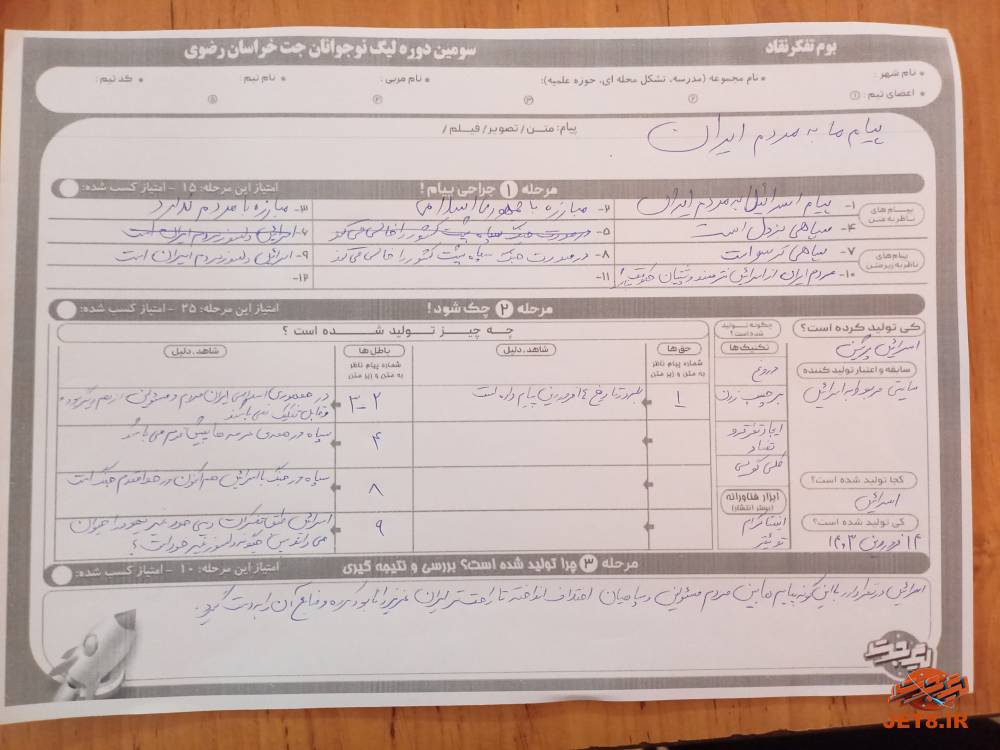 بوم تفکر نقاد
سومین دوره لیگ نوجوانان جت خراسان رضوی
* نام شهر :
* نام مجموعه (مدرسه، تشکل محله ای، حوزه علمیه):
* نام مربی :
* نام تیم :
* کد تیم :
* اعضای تیم : ①
②
③
④
⑤
پیام: متن/ تصویر/ فیلم/
پیام ما به مردم ایران
مرحله ۱ جراحی پیام!
امتیاز این مرحله: ۱۵ - امتیاز کسب شده:
پیام های ناظر به متن
۱- پیام اسرائیل به مردم ایران
۲- مبارزه با جمهوری اسلامی
۳- مبارزه با مردم ندارد
۴- سپاهی بزدل است
۵- در صورت جنگ سپاه پشت کشور را خالی می‌کند
۶- اسرائیل دلسوز مردم ایران است
پیام‌های ناظر به زیر متن
۷- سپاهی ترسو است
۸- در صورت جنگ سپاه پشت کشور را خالی می‌کند
۹- اسرائیل دلسوز مردم ایران است
۱۰- مردم ایران از اسرائیل نترسند
۱۱-
۱۲-
مرحله ۲ چک شود!
امتیاز این مرحله: ۲۵ - امتیاز کسب شده:
کی تولید کرده است؟
اسرائیل
سابقه و اعتبار تولید کننده
سایتی مربوط به اسرائیل
کجا تولید شده است؟
اسرائیل
کی تولید شده است؟
۱۴ فروردین ۱۴۰۳
چگونه تولید شده است؟
تکنیک‌ها
دروغ
برچسب زدن
ایجاد تفرقه و تضاد
کلی گویی
ابزار فناورانه
(بوستر انتشار)
اینستاگرام
توئیتر
چه چیز تولید شده است ؟
حق‌ها
شماره پیام ناظر به متن و زیر متن
شاهد، دلیل
باطل‌ها
شماره پیام ناظر به متن و زیر متن
شاهد، دلیل
۱
در تاریخ ۱۴ فروردین پیام داده است
۲-۳
در جمهوری اسلامی ایران مردم و مسئولین از هم دیگر
قابل تفکیک نمی باشند
۴
سپاه در همه ی عرصه ها پیشگام مردم می باشد
۸
سپاه در جنگ با اسرائیل هم اکنون در خط مقدم جنگ است
۹
اسرائیل طبق تفکرات دینی خود غیر یهود را حیوان
می دانند پس چگونه دلسوز غیر خود است؟
مرحله ۳ چرا تولید شده است؟ بررسی و نتیجه گیری
امتیاز این مرحله: ۱۰ - امتیاز کسب شده:
اسرائیل در نظر دارد با این گونه پیام ها بین مردم مسئولین و سپاهیان اختلاف انداخته تا راحت تر ایران عزیز را نابود کرده و منابع آن را به دست گیرد.
JET8.IR